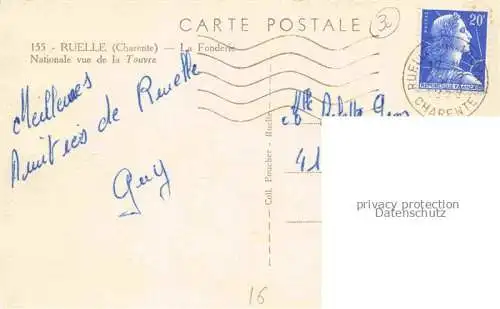 CARTE POSTALE
3c
155 - RUELLE (Charente) — La Fonderie
Nationale vue de la Touvre
POSTES 20F
REPUBLIQUE FRANÇAISE
RUELLE
CHARENTE
Meilleures
Amitiés de Ruelle
Guy
Mlle
41
Coll. Foucher - Ruelle
privacy protection
Datenschutz
16